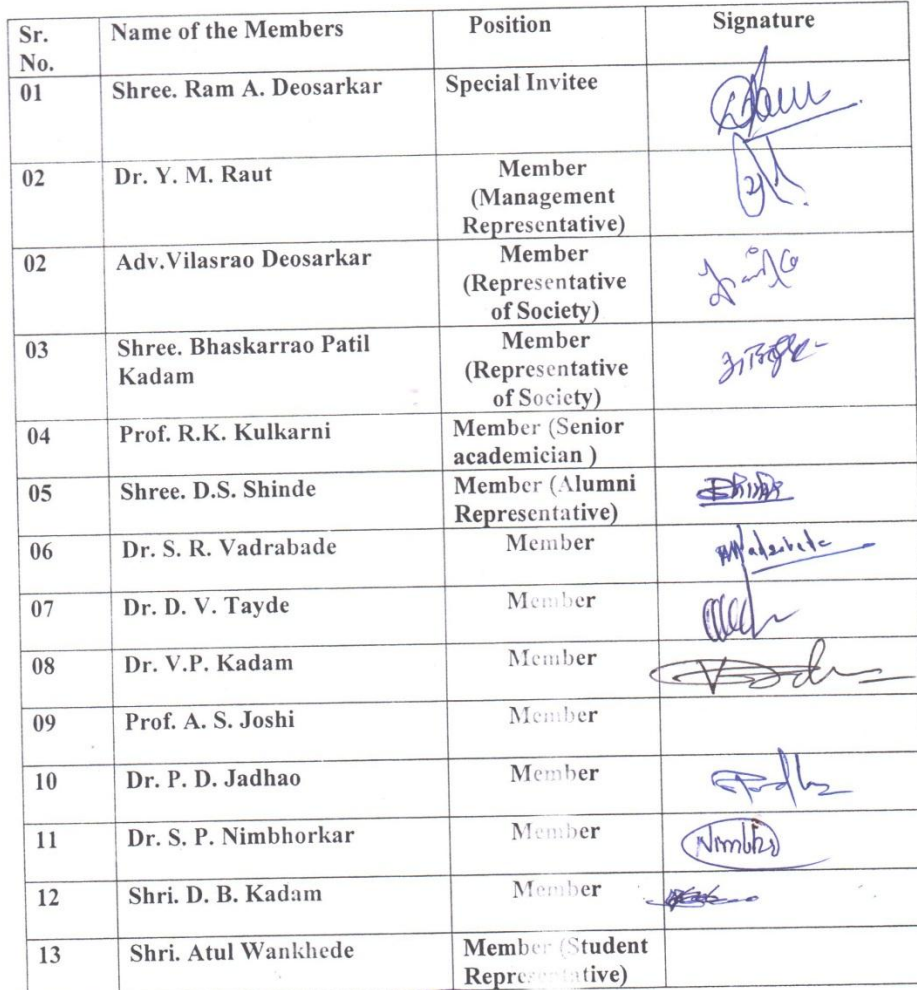 Sr. Name of the Members Position Signature
No.
01 Shree. Ram A. Deosarkar Special Invitee
02 Dr. Y. M. Raut Member
(Management
Representative)
02 Adv.Vilasrao Deosarkar Member
(Representative
of Society)
03 Shree. Bhaskarrao Patil Member
Kadam (Representative
of Society)
04 Prof. R.K. Kulkarni Member (Senior
academician )
05 Shree. D.S. Shinde Member (Alumni
Representative)
06 Dr. S. R. Vadrabade Member
07 Dr. D. V. Tayde Member
08 Dr. V.P. Kadam Member
09 Prof. A. S. Joshi Member
10 Dr. P. D. Jadhao Member
11 Dr. S. P. Nimbhorkar Member
12 Shri. D. B. Kadam Member
13 Shri. Atul Wankhede Member (Student
Representative)